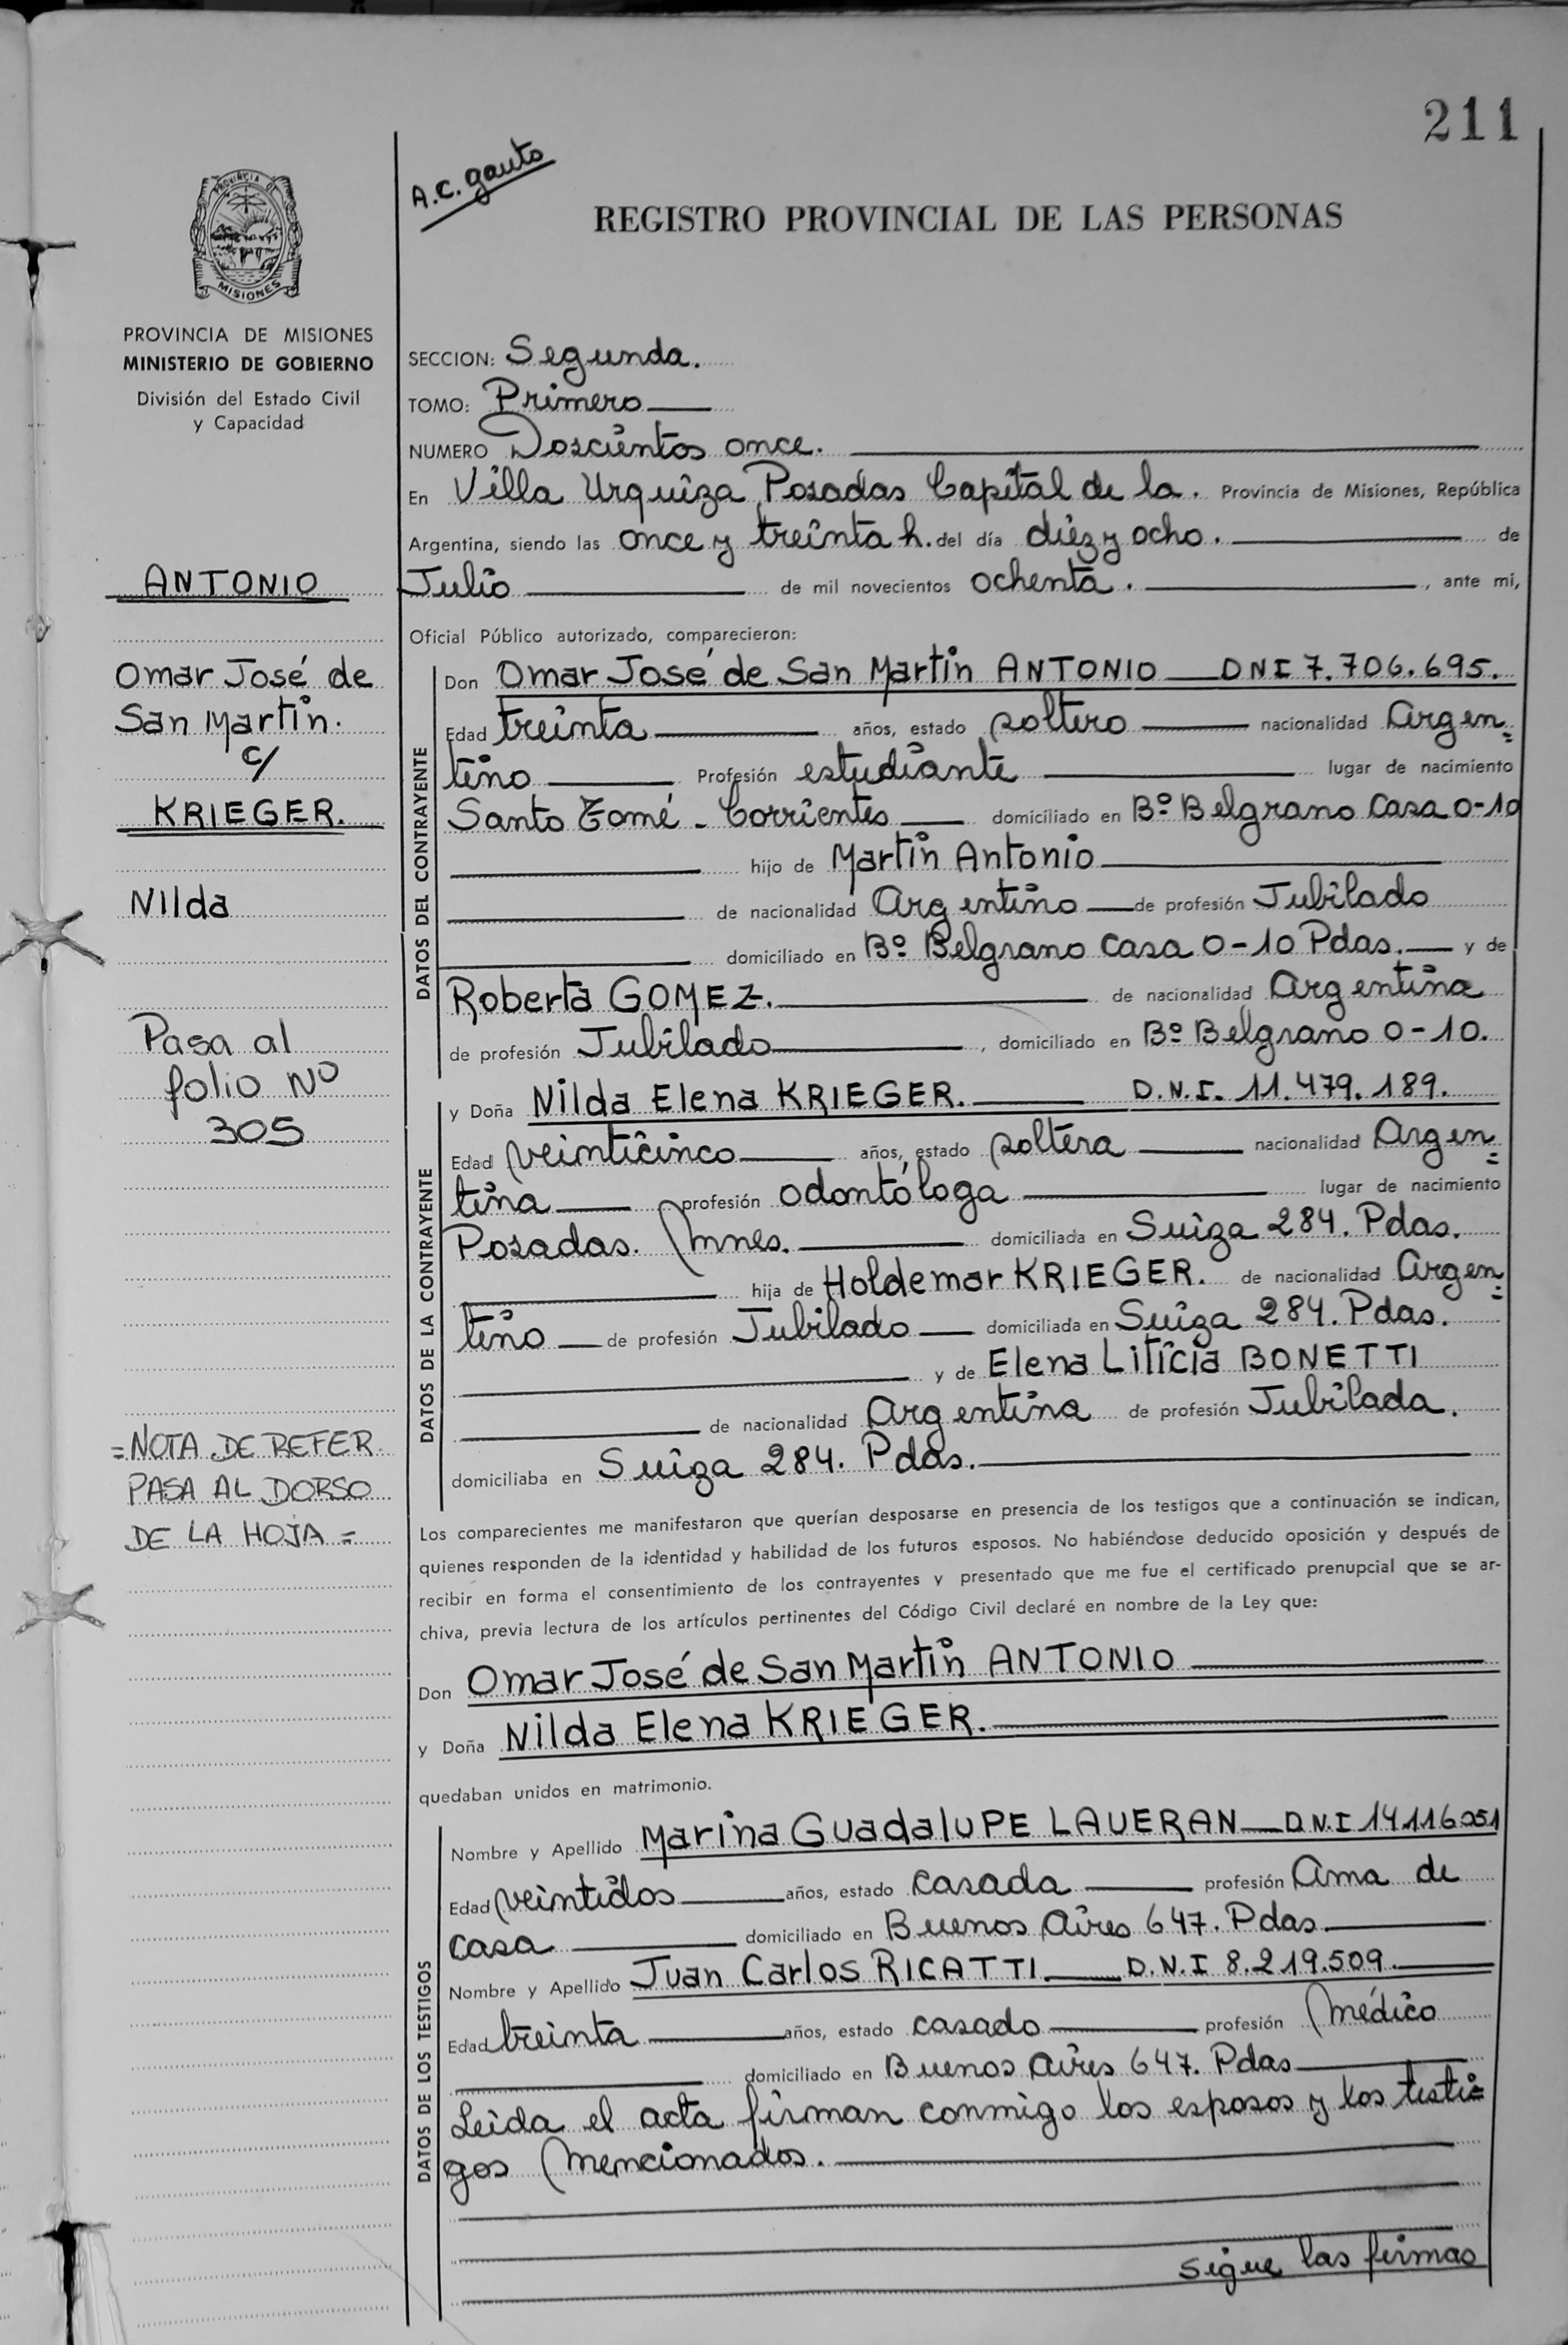 211
A.C. Gauto
REGISTRO PROVINCIAL DE LAS PERSONAS
PROVINCIA DE
MISIONES
PROVINCIA DE MISIONES
MINISTERIO DE GOBIERNO
División del Estado Civil
y Capacidad
ANTONIO
Omar José de
San Martín.
c/
KRIEGER.
Nilda
Pasa al
folio Nº
305
=NOTA DE REFER
PASA AL DORSO
DE LA HOJA=
SECCION: Segunda.
TOMO: Primero
NUMERO Doscientos once.
En Villa Urquiza, Posadas Capital de la. Provincia de Misiones, República
Argentina, siendo las once y treinta h. del día diez y ocho. de
Julio de mil novecientos ochenta. , ante mi,
Oficial Público autorizado, comparecieron:
DATOS DEL CONTRAYENTE
Don Omar José de San Martín ANTONIO DNI 7.706.695.
Edad treinta años, estado soltero nacionalidad Argen=
tino Profesión estudiante lugar de nacimiento
Santo Tomé - Corrientes domiciliado en Bº Belgrano Casa 0-10
hijo de Martín Antonio
de nacionalidad Argentino de profesión Jubilado
domiciliado en Bº Belgrano Casa 0-10 Pdas. y de
Roberta GOMEZ. de nacionalidad Argentina
de profesión Jubilado , domiciliado en Bº Belgrano 0-10.
DATOS DE LA CONTRAYENTE
y Doña Nilda Elena KRIEGER. D.N.I. 11.479.189.
Edad veinticinco años, estado soltera nacionalidad Argen=
tina profesión odontóloga lugar de nacimiento
Posadas. Mnes. domiciliada en Suiza 284. Pdas.
hija de Holdemar KRIEGER. de nacionalidad Argen=
tino de profesión Jubilado domiciliada en Suiza 284. Pdas.
y de Elena Liticia BONETTI
de nacionalidad Argentina de profesión Jubilada.
domiciliaba en Suiza 284. Pdas.
Los comparecientes me manifestaron que querían desposarse en presencia de los testigos que a continuación se indican,
quienes responden de la identidad y habilidad de los futuros esposos. No habiéndose deducido oposición y después de
recibir en forma el consentimiento de los contrayentes y presentado que me fue el certificado prenupcial que se ar-
chiva, previa lectura de los artículos pertinentes del Código Civil declaré en nombre de la Ley que:
Don Omar José de San Martín ANTONIO
y Doña Nilda Elena KRIEGER.
quedaban unidos en matrimonio.
DATOS DE LOS TESTIGOS
Nombre y Apellido Marina GUADALUPE LAUERAN D.N.I 14.116051
Edad veintidos años, estado casada profesión Ama de
casa domiciliado en Buenos Aires 647. Pdas
Nombre y Apellido Juan Carlos RICATTI D.N.I 8.219.509.
Edad treinta años, estado casado profesión Médico
domiciliado en Buenos Aires 647. Pdas
Leida el acta firman conmigo los esposos y los testi=
gos mencionados.
sigue las firmas